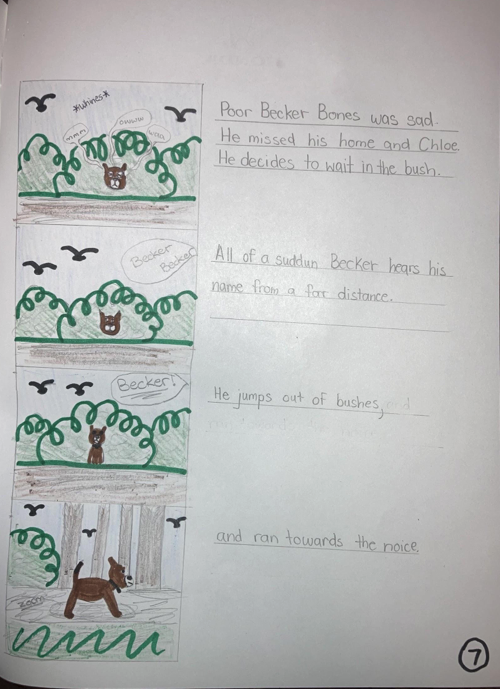 *whines*
Poor Becker Bones was sad.
He missed his home and Chloe.
He decides to wait in the bush.
Becker
Becker
All of a suddun Becker hears his
name from a far distance.
Becker!
He jumps out of bushes,
and ran towards the noice.
zoom
7